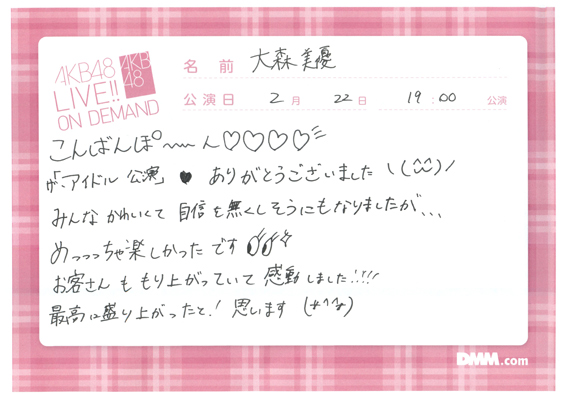 AKB48
LIVE!!
ON DEMAND
AKB
48
名 前 大森美優
公演日 2月 22日 19:00 公演
こんばんぽ〜〜ん♡♡♡♡
「ザ・アイドル 公演」♥ ありがとうございました \(^^)/
みんな かわいくて 自信を無くしそうにもなりましたが...
めっっっちゃ楽しかった です
お客さん も もり上がっていて 感動しました!!!!
最高に盛り上がったと!思います (*^^*)
DMM.com